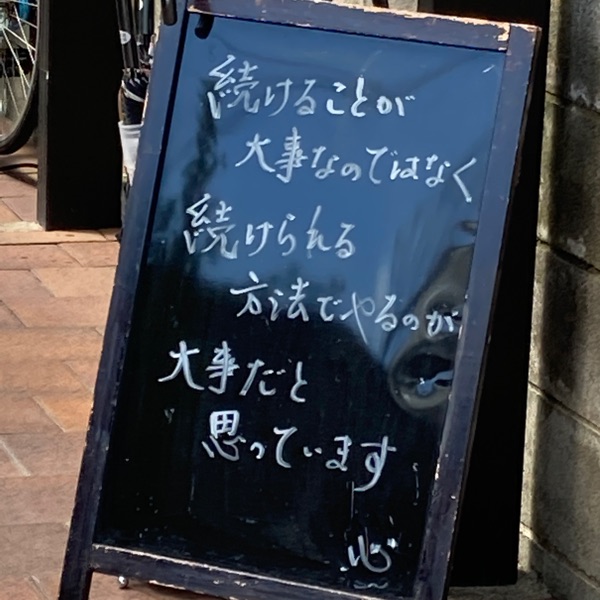 続けることが
大事なのではなく
続けられる
方法でやるのが
大事だと
思っています
心